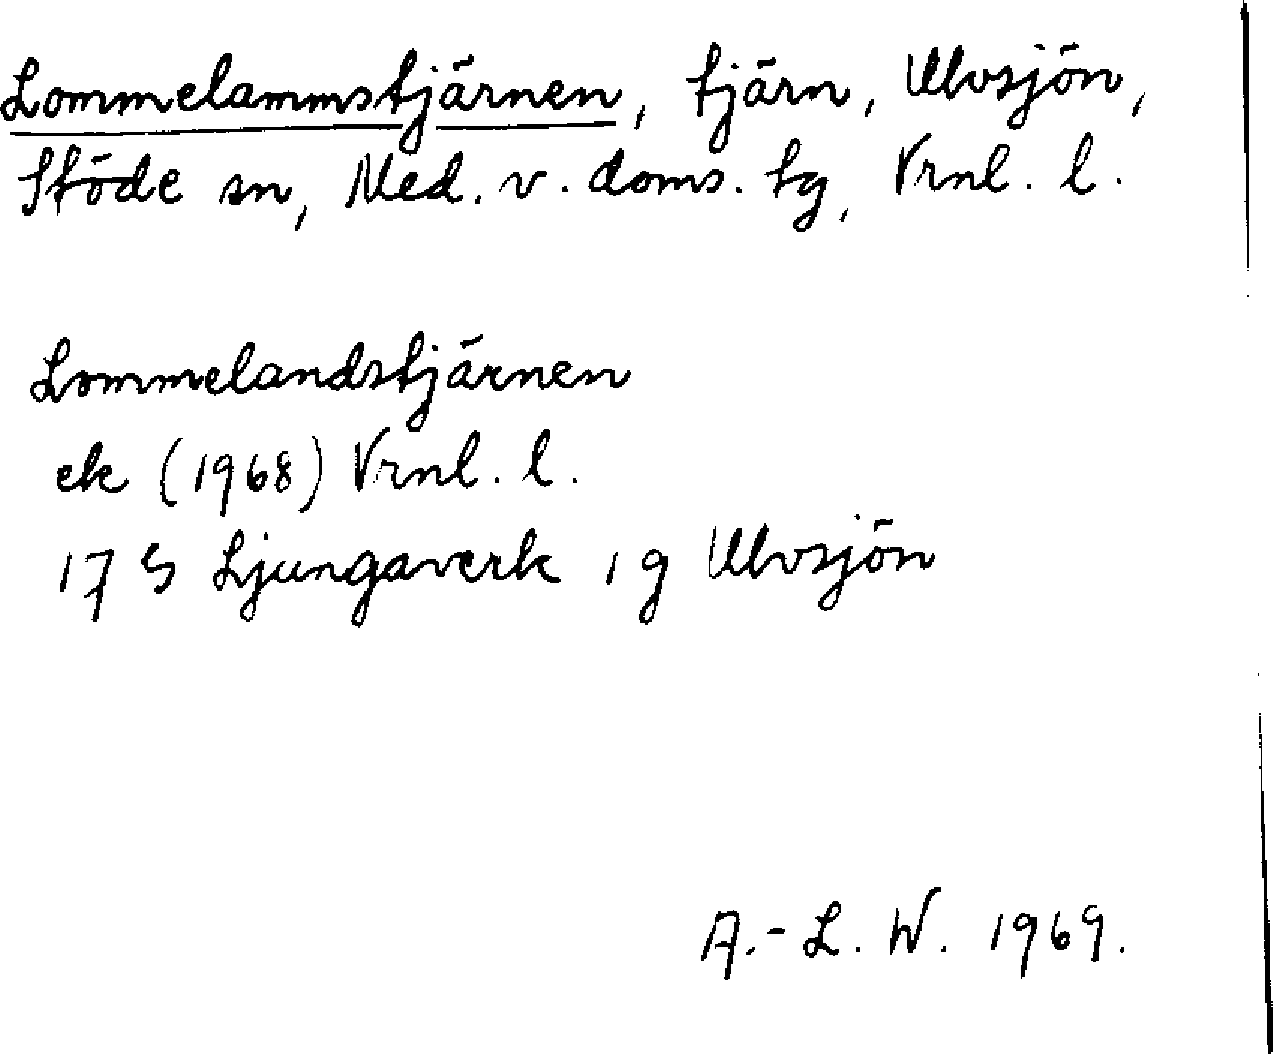 Lommelammstjärnen, tjärn, Ulvsjön,
Stöde sn, Med. v. doms. tg, Vrnl. l.
Lommelandstjärnen
ek (1968) Vrnl. l.
17 G Ljungaverk 1 g Ulvsjön
A.-L. W. 1969.